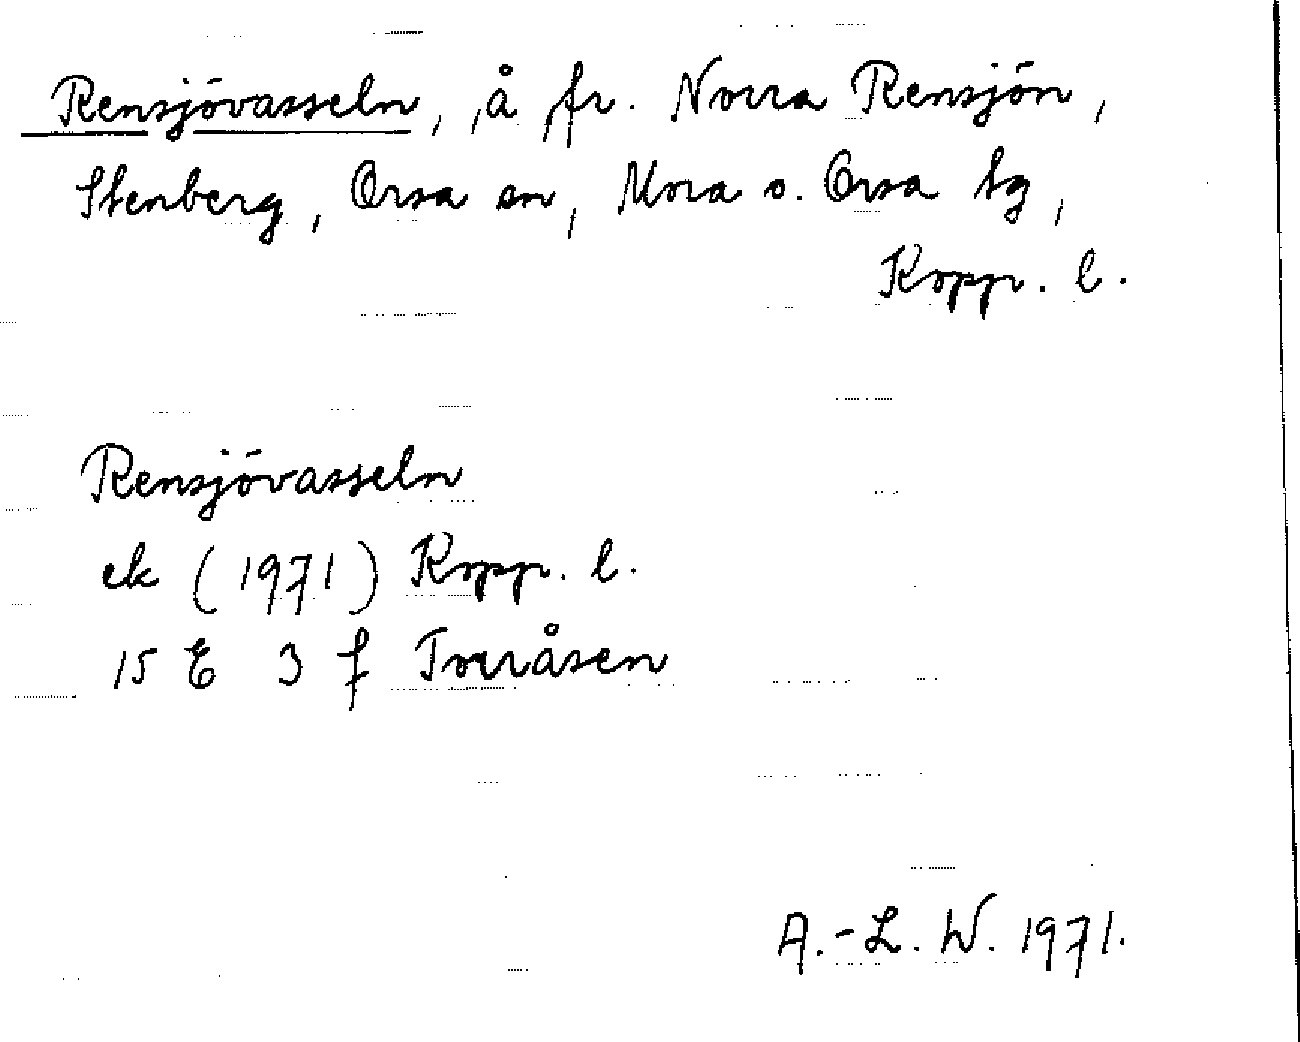 Rensjövasseln, å fr. Norra Rensjön,
Stenberg, Orsa sn, Mora o. Orsa tg,
Kopp. l.
Rensjövasseln
ek (1971) Kopp. l.
15 E 3 f Tvaråsen
A.-L. W. 1971.